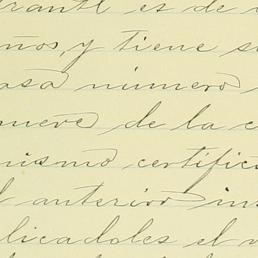 es de
ños, y tiene s
asa número
nueve de la c
mismo certific
l anterior in
licadoles el